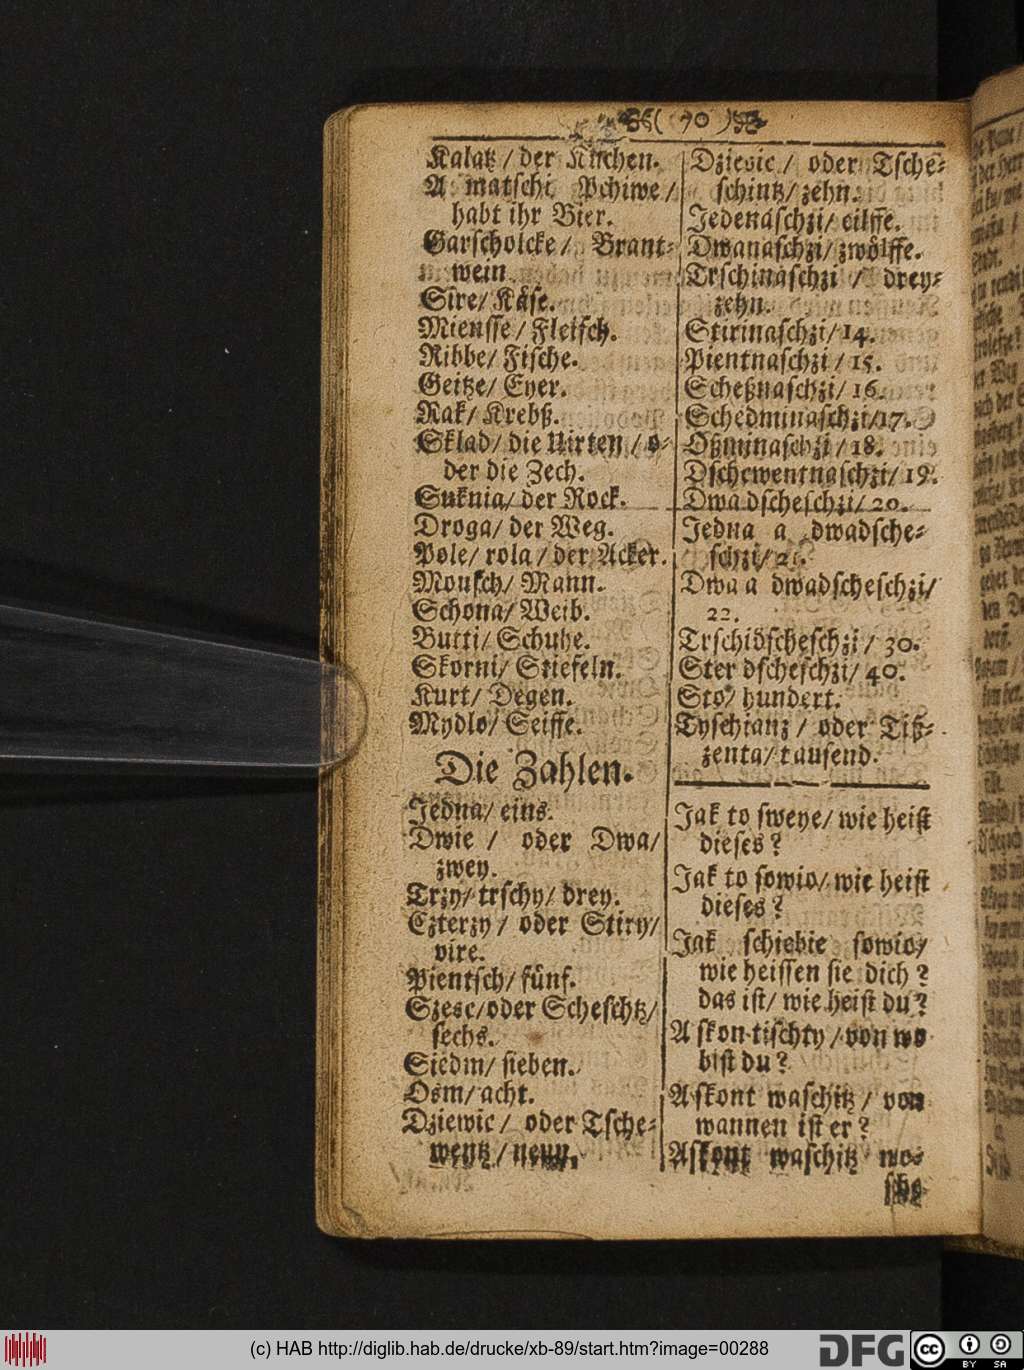 ( 70 )
Kalatz / der Kuchen.
A matschi Pchiwe /
habt ihr Bier.
Garscholcke / Brant-
wein.
Sire / Käse.
Miensse / Fleisch.
Ribbe / Fische.
Geitze / Eyer.
Rak / Krebß.
Sklad / die Uirten / o-
der die Zech.
Suknia / der Rock.
Droga / der Weg.
Pole / rola / der Acker.
Mousch / Mann.
Schona / Weib.
Butti / Schuhe.
Skorni / Stiefeln.
Kurt / Degen.
Mydlo / Seiffe.
Die Zahlen.
Jedna / eins.
Dwie / oder Dwa /
zwey.
Trzy / trschy / drey.
Czterzy / oder Stiry /
vire.
Pientsch / fünf.
Szesc / oder Scheschtz /
sechs.
Siedm / sieben.
Osm / acht.
Dziewic / oder Tsche-
wentz / neun.
Dziesic / oder Tsche-
schintz / zehn.
Jedenaschzi / eilffe.
Dwanaschzi / zwölffe.
Trschinaschzi / drey-
zehn.
Stirinaschzi / 14.
Pientnaschzi / 15.
Scheßnaschzi / 16.
Schedminaschzi / 17.
Oßminaschzi / 18.
Dschewentnaschzi / 19.
Dwadscheschzi / 20.
Jedna a dwadsche-
schzi / 21.
Dwa a dwadscheschzi /
22.
Trschidscheschzi / 30.
Sterdscheschzi / 40.
Sto / hundert.
Tyschianz / oder Tiß-
zenta / tausend.
Jak to sweye / wie heist
dieses?
Jak to sowio / wie heist
dieses?
Jak schiebie sowio /
wie heissen sie dich?
das ist / wie heist du?
A skon tischty / von wo
bist du?
A skont waschitz / von
wannen ist er?
A skont waschitz wo-
sche
(c) HAB http://diglib.hab.de/drucke/xb-89/start.htm?image=00288
DFG
cc
BY SA